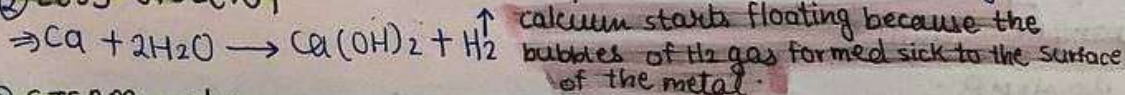 ⇒Ca + 2H2O ⟶ Ca(OH)2 + H2↑ calcium starts floating because the
bubbles of H2 gas formed sick to the surface
of the metal.